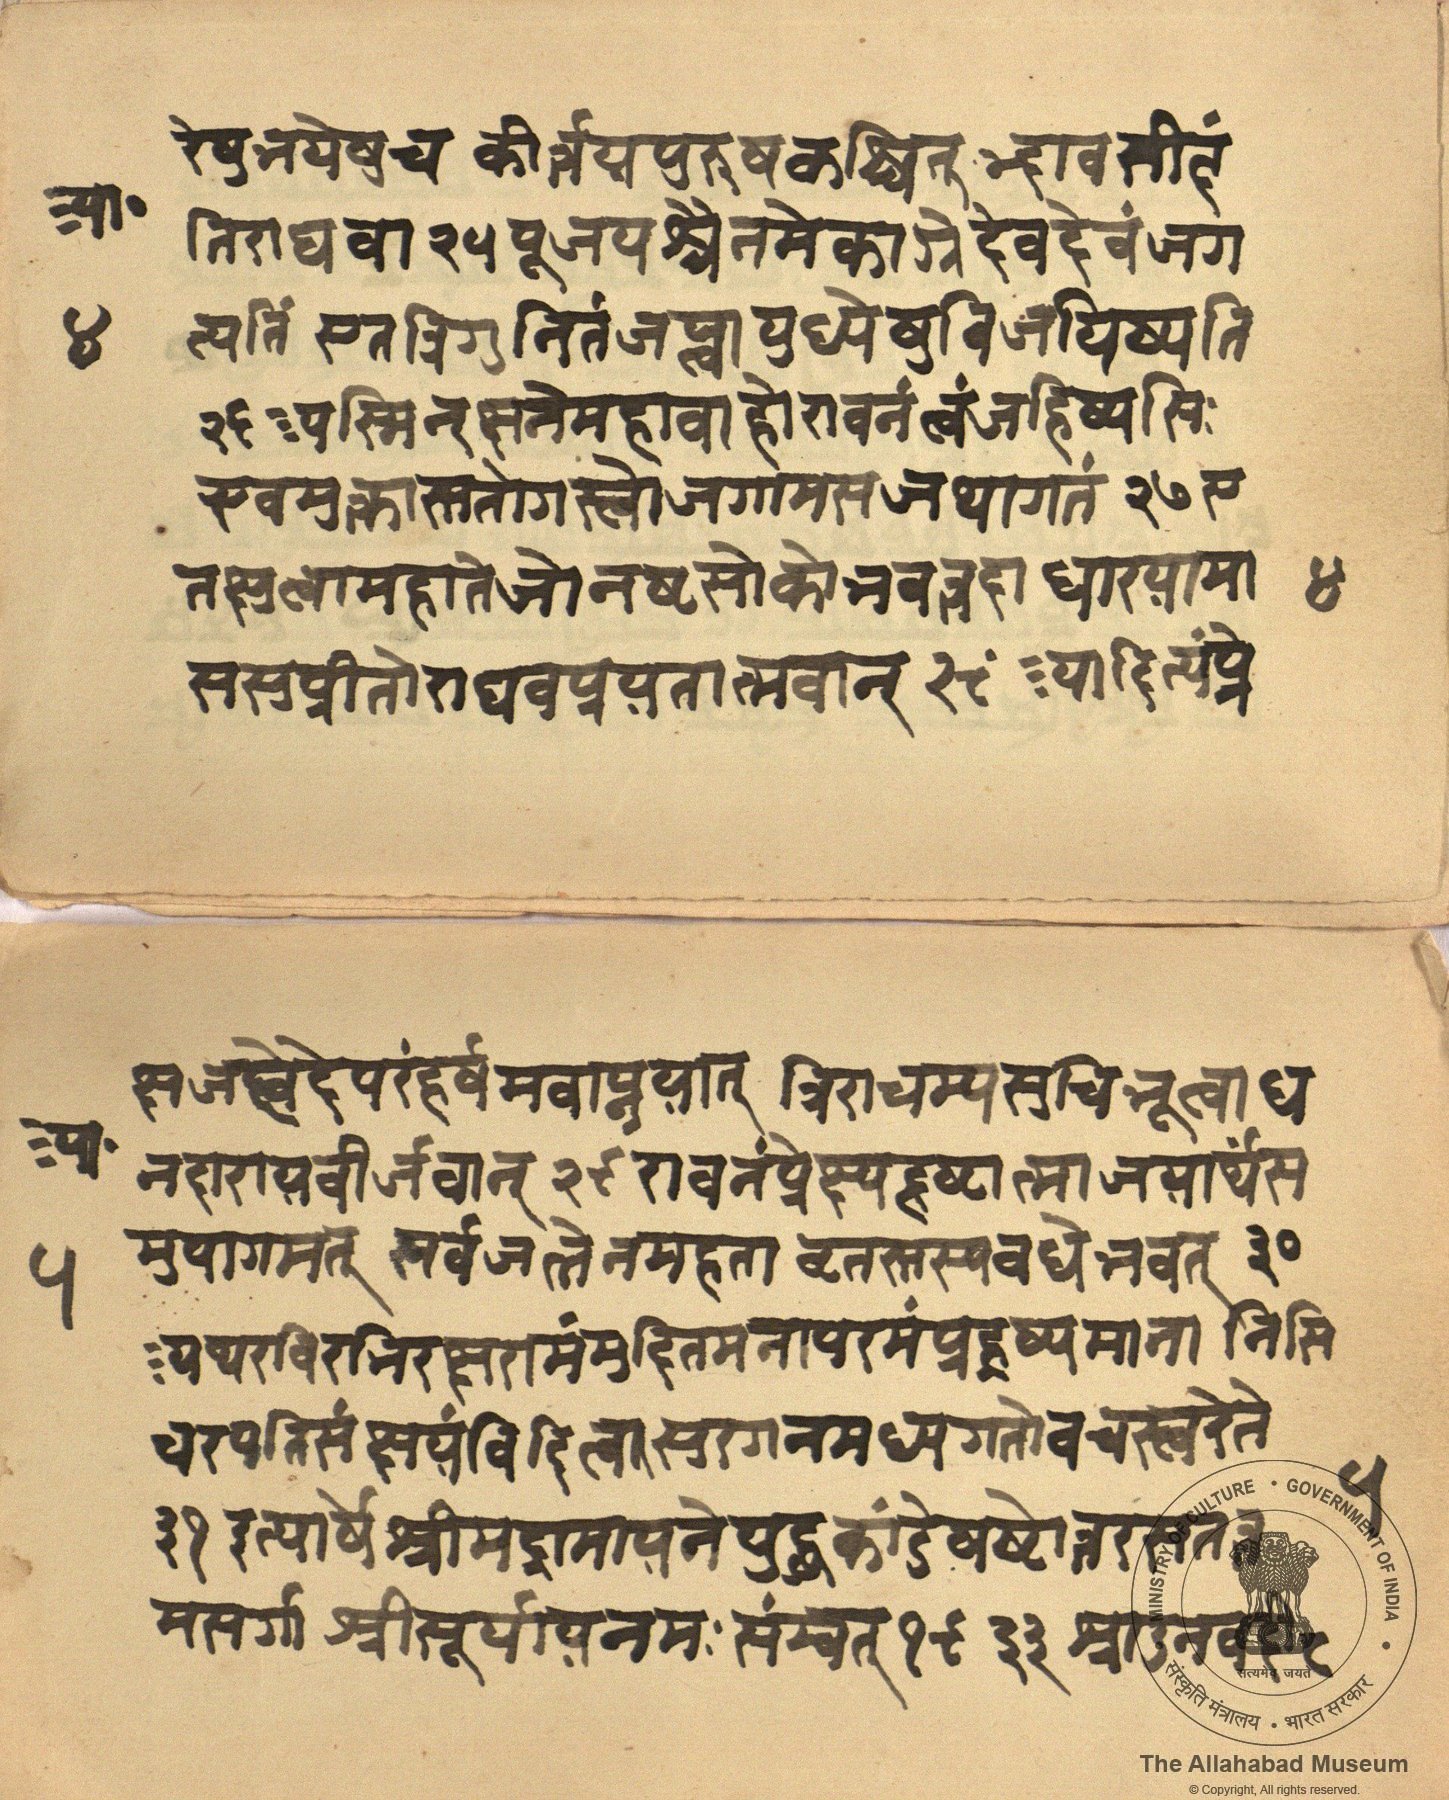 रेषुभयेषुच कीर्त्तयपुरुषकश्चित् न्हावसीहं
आ॰
तिराघवा २५ पूजयश्चैनमेकाग्रे देवदेवंजग
४
त्पतिं एतत्रिगुनितंजप्त्वा युध्येषुविजयिष्यति
२६ अस्मिन् क्षनेमहावाहो रावनंत्वंजहिष्यसिः
एवमुक्त्वास्ततोगस्त्यो जगामसजथागतं २७ ए
तक्षुत्वामहातेजो नष्टसोकोभवत्तदा धारयामा ४
ससुप्रीतो राघवप्रयतात्मवान् २८ आदित्यंप्रे
क्षजप्त्वेदेपरंहर्षमवाप्नुयात् त्रिराचम्यसुचिभूत्वा ध
आ॰
नहारायवीर्जवान् २९ रावनंप्रेक्ष्यहृष्टात्मा जयार्थंस
मुपागमत् सर्वजत्नेनमहता वृतस्तस्यवधेभवत् ३०
५
अथरविरभिरक्षरामंमुदितमनापरमंप्रहृष्यमाना निसि
चरपतिसंक्षयंविदित्वा सुरगनमध्यगतोवचस्त्वरेते
५
३१ इत्यार्षे श्रीमद्रामायने युद्धकांडे षष्टोत्तरसतत
मसर्गा श्रीसूर्यायनमः संम्वत् १९३३
MINISTRY OF CULTURE • GOVERNMENT OF INDIA
सत्यमेव जयते
संस्कृति मंत्रालय • भारत सरकार
The Allahabad Museum
© Copyright, All rights reserved.